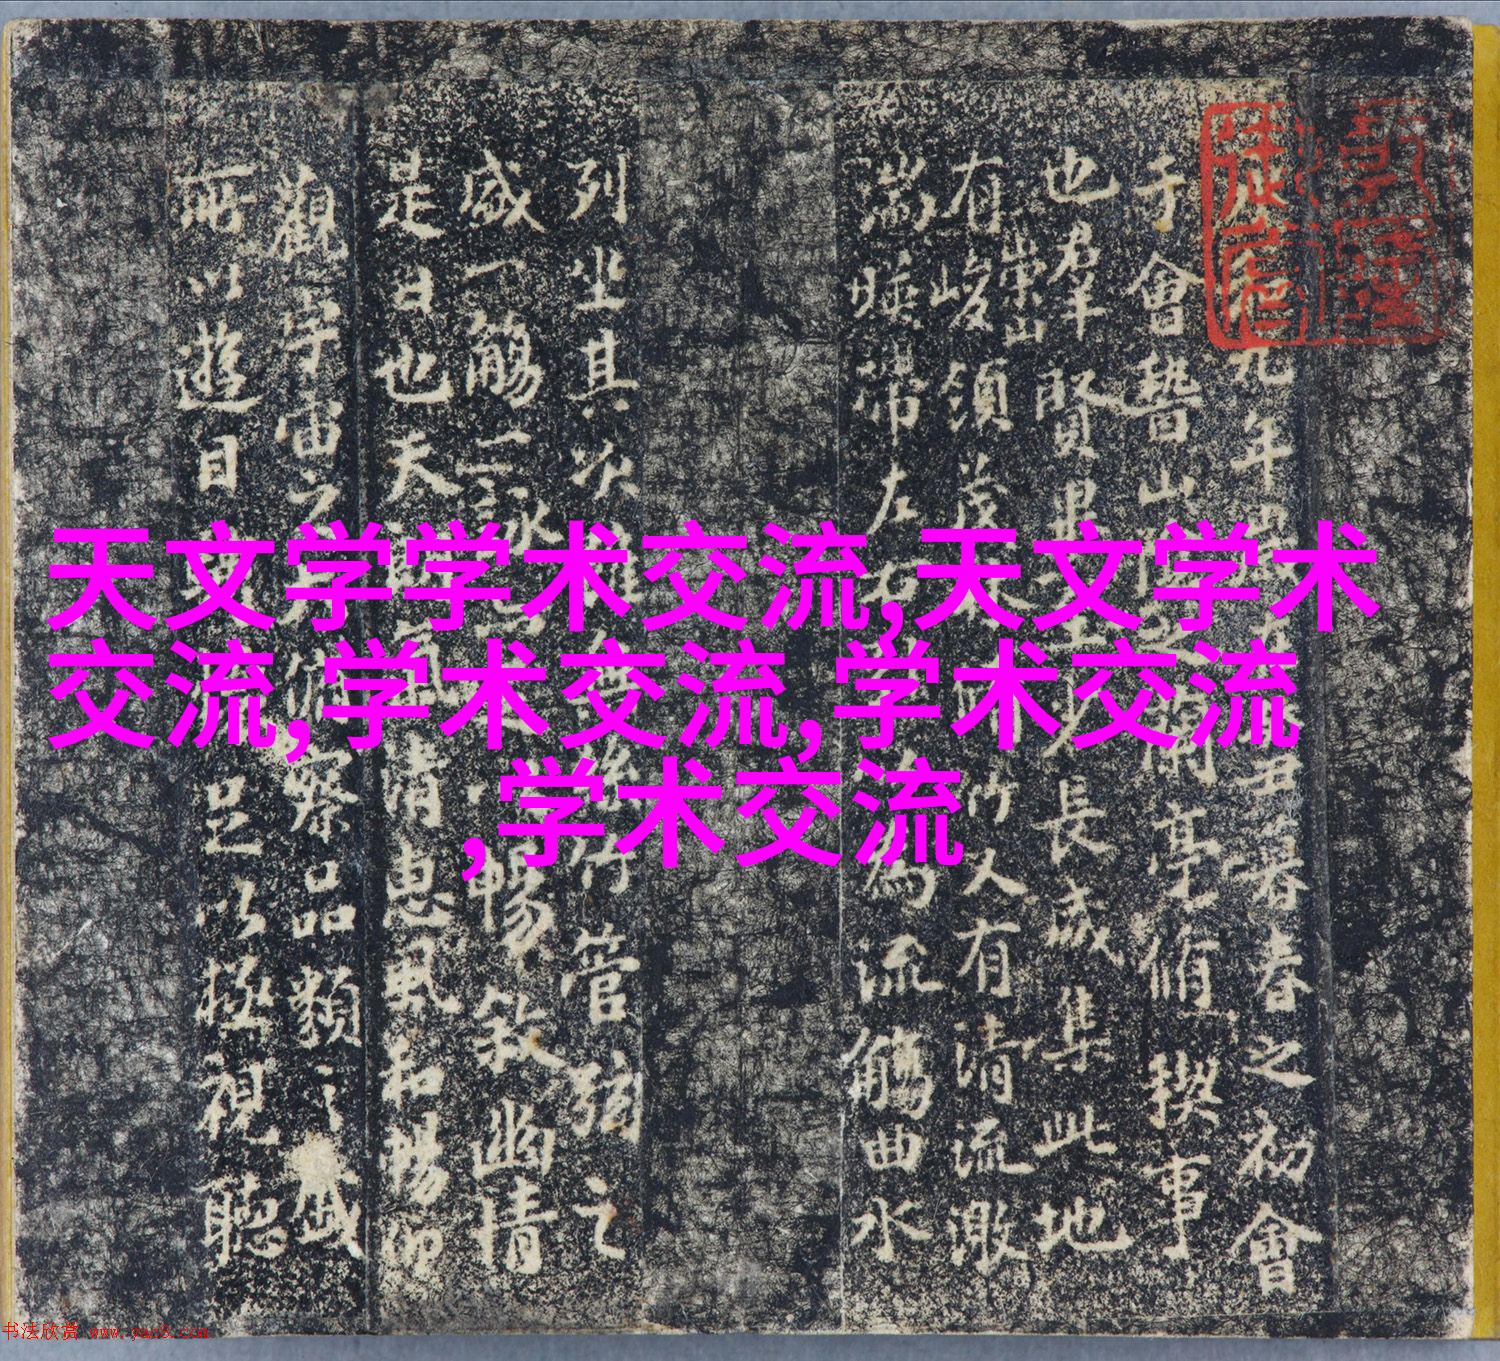 天文学学术交流,天文学术
交流,学术交流,学术交流
,学术交流
九年暮春之初會
于會稽山蘭亭脩禊事
也群賢畢長咸集此地
有崇山峻領茂又有清流激
湍暎帶左右為流觴曲水
列坐其次竹管弦之
盛一觴一詠暢敘幽情
是日也天清惠風和暢仰
觀宇宙之察品類之盛
所以遊目足以極視聽
书法欣赏 www.yac8.com